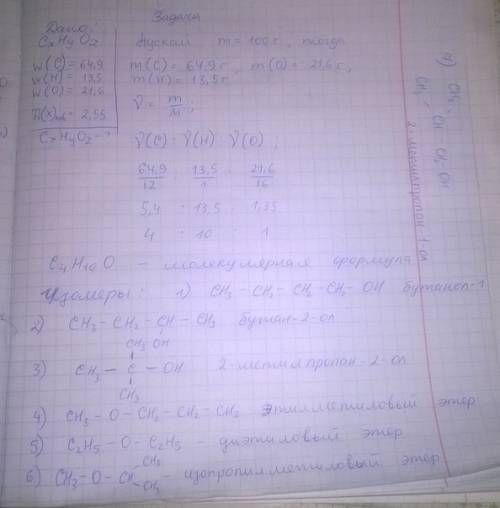 Задача
Дано:
CxHyOz
w(C) = 64,9
w(H) = 13,5
w(O) = 21,6
D(x)возд = 2,55
CxHyOz - ?
Пускай m = 100 г, тогда
m(C) = 64,9 г, m(O) = 21,6 г,
m(H) = 13,5 г
ν = m/M ;
ν(C) : ν(H) : ν(O) ;
64,9/12 : 13,5/1 : 21,6/16
5,4 : 13,5 : 1,35
4 : 10 : 1
C4H10O - молекулярная формула
Изомеры: 1) CH3 - CH2 - CH2 - CH2 - OH бутанол-1
2) CH3 - CH2 - CH - CH3 бутан-2-ол
OH
CH3
3) CH3 - C - OH 2-метилпропан-2-ол
CH3
4) CH3 - O - CH2 - CH2 - CH2 этилметиловый этер
5) C2H5 - O - C2H5 - диэтиловый этер
6) CH3 - O - CH - изопропилметиловый этер
CH3
CH3
7) CH3 - CH CH2 OH
CH3
2-метилпропан-1-ол